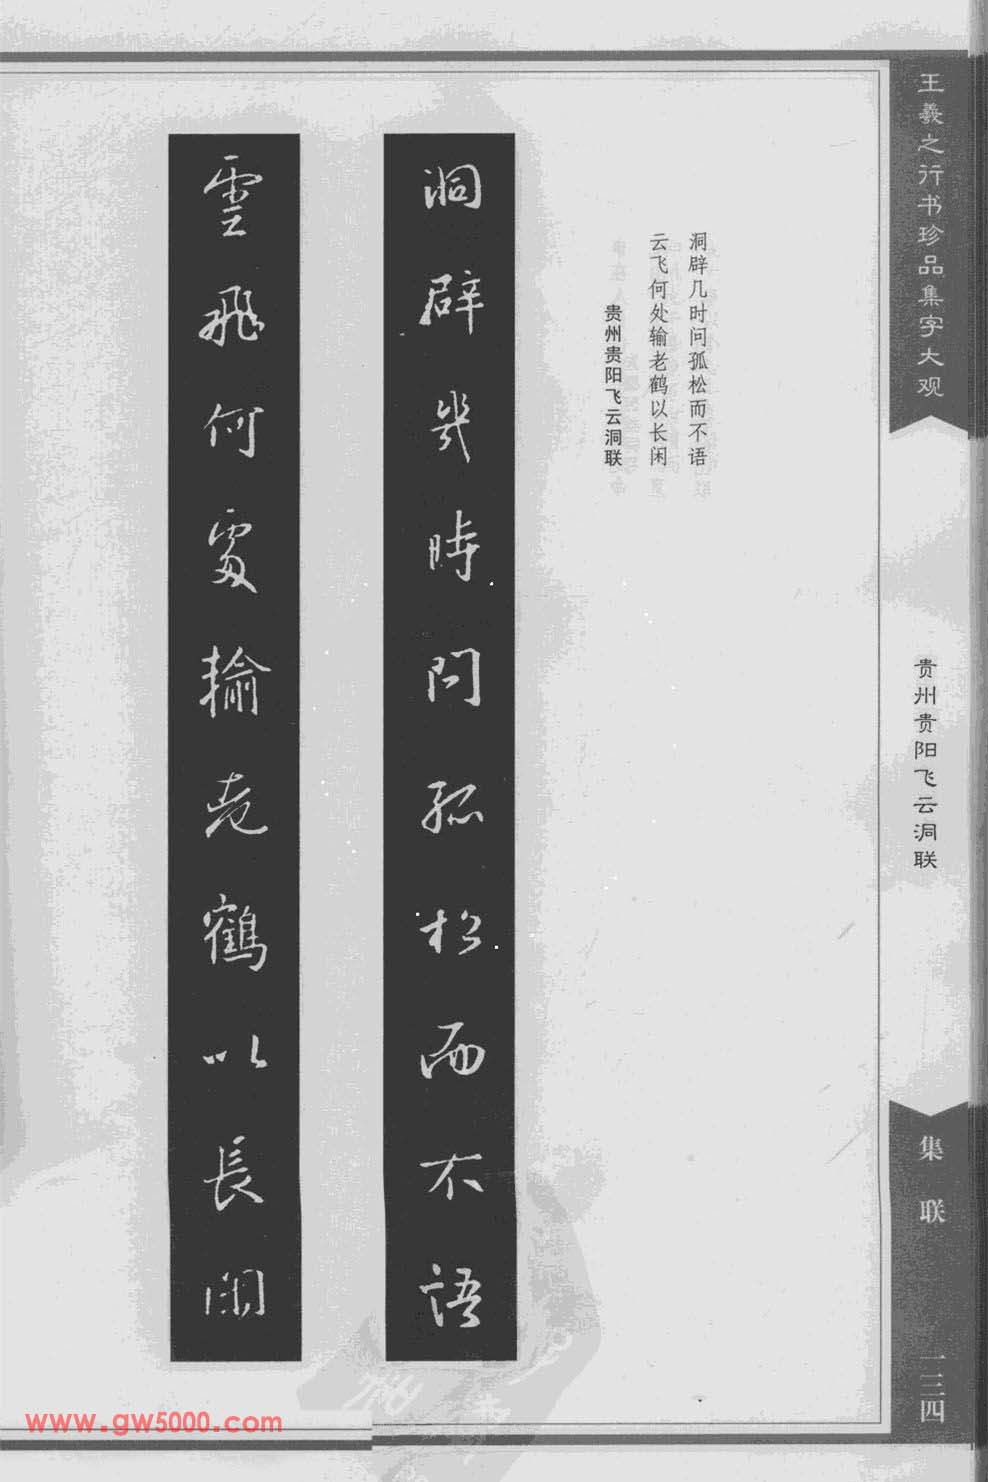 王羲之行书珍品集字大观
贵州贵阳飞云洞联
集联
一三四
洞辟几时问孤松而不语
云飞何处输老鹤以长闲
贵州贵阳飞云洞联
洞辟幾時問孤松而不語
雲飛何處輸老鶴以長閒
www.gw5000.com